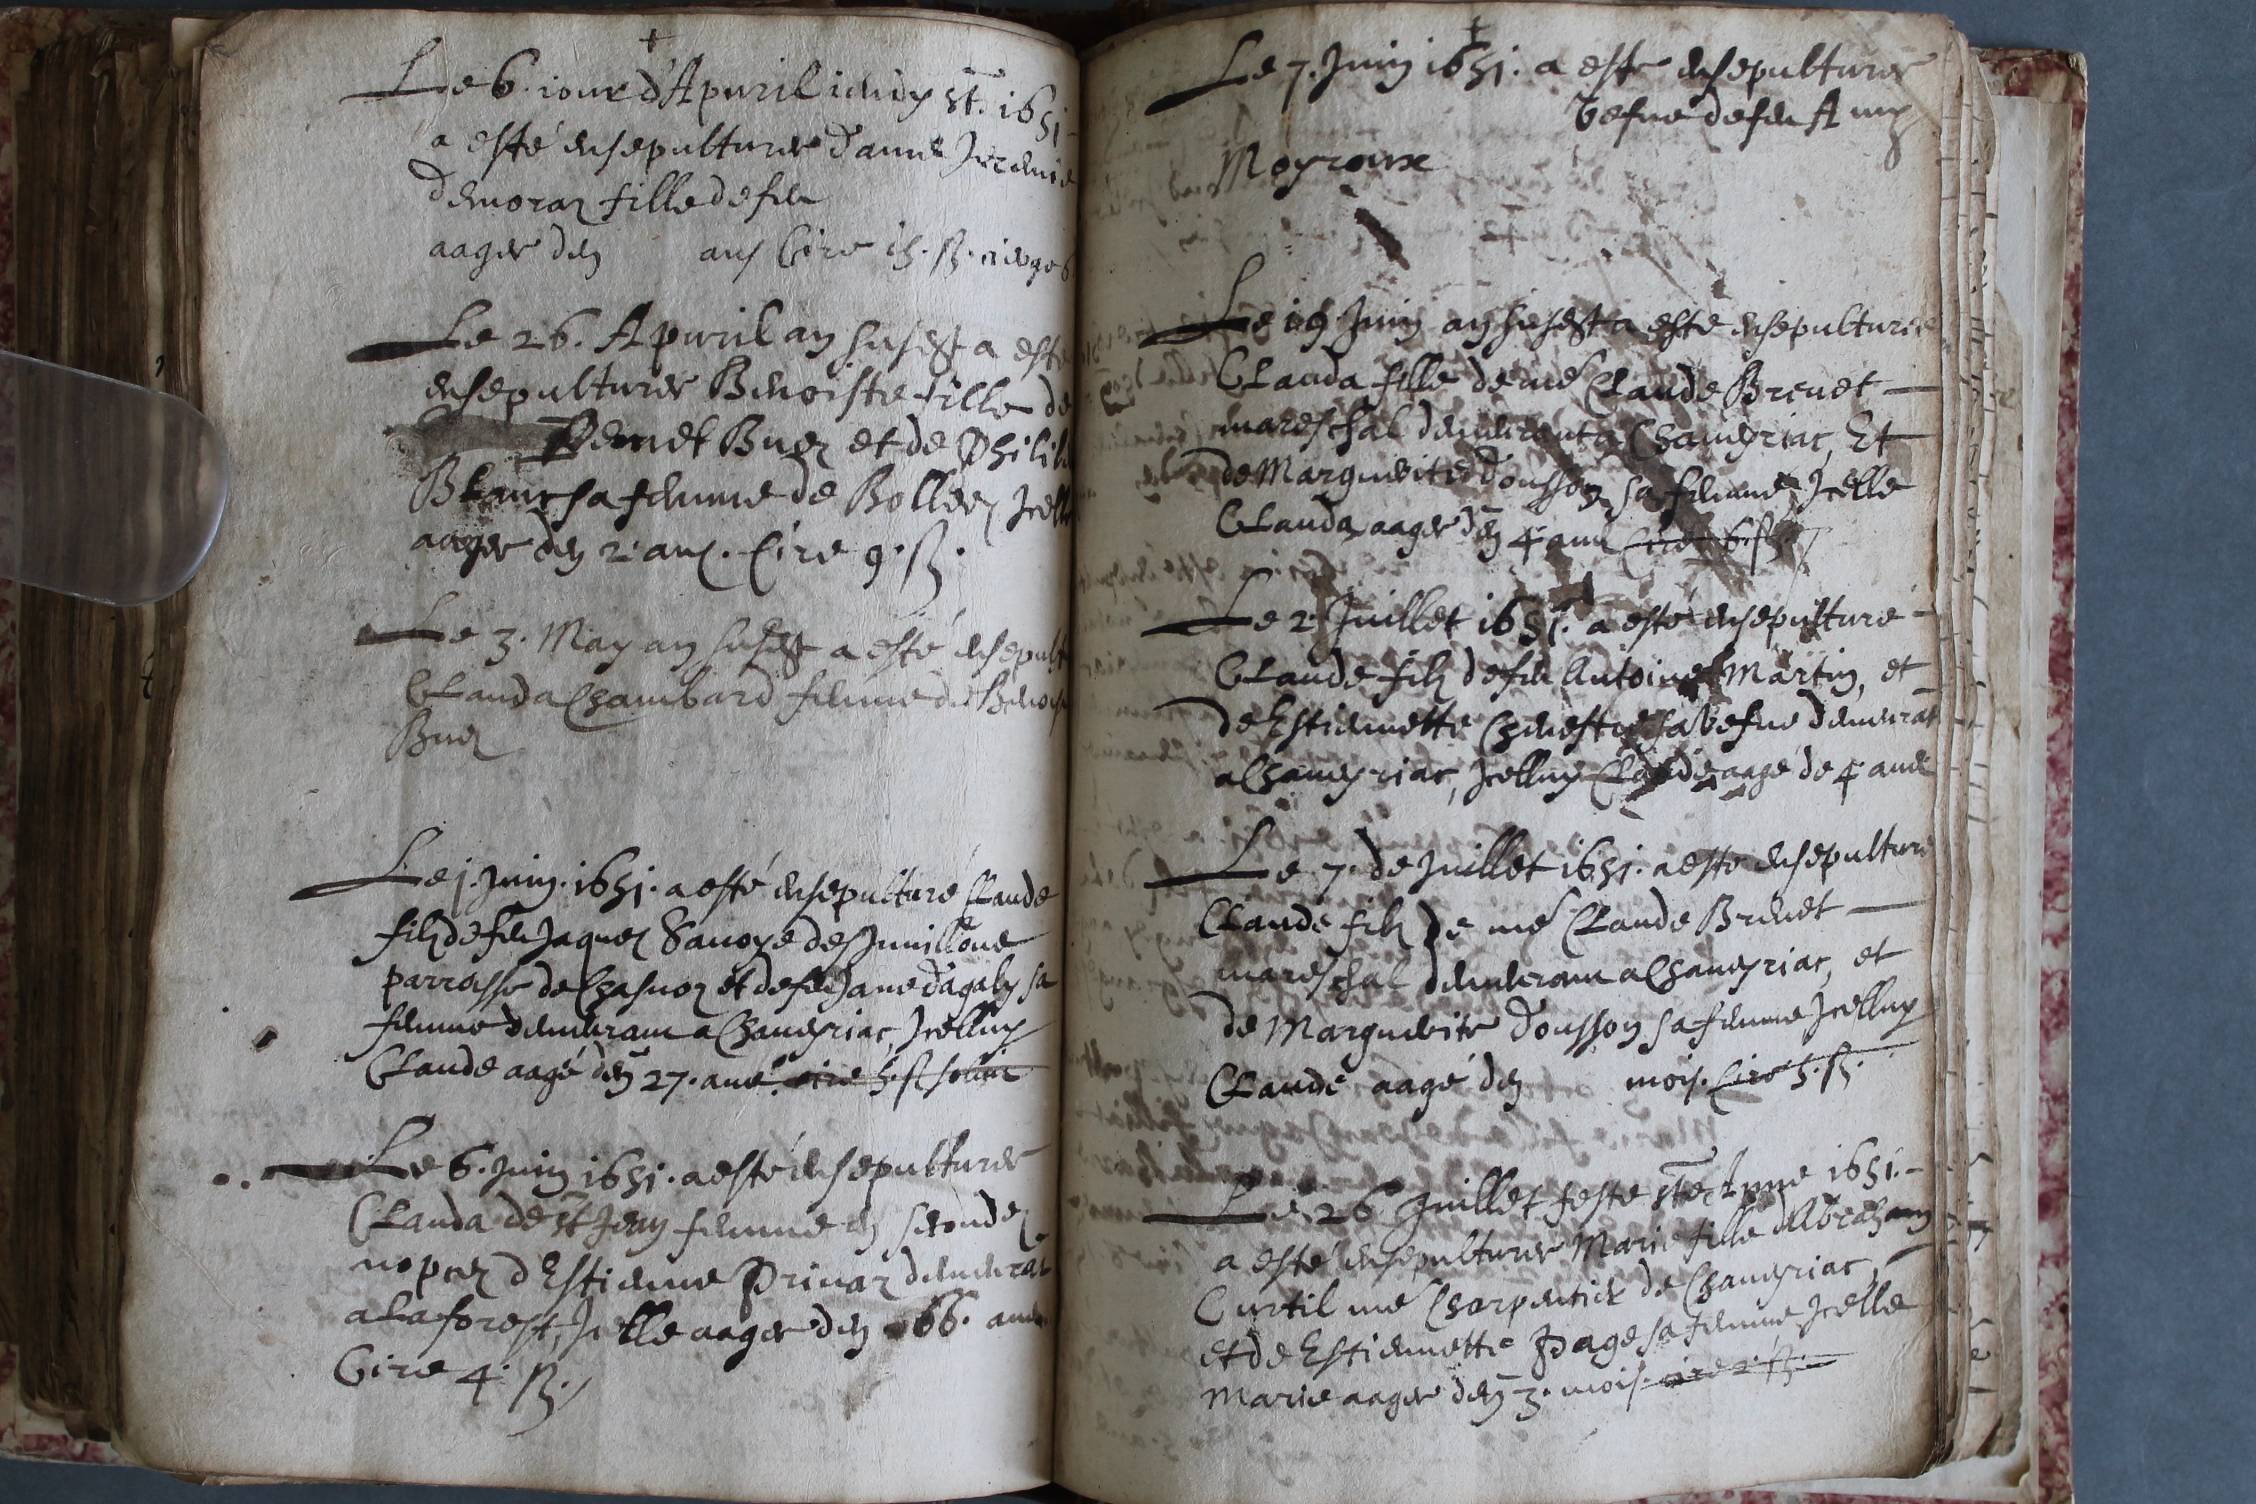 Le 6. iour d'Apuril ieudy st. 1651
a esté ensepulturee dame
demoraz fille de feu
aagee den ans Cire 15. ß. cierges 6
Le 26. Apuril an susest a esté
ensepulturee Benoiste fille de
Buez et de Philib
Blanc sa femme de Bolleez Icelle
aagee den 2. ans. Cire 9. ß.
Le 3. May an susest a esté ensepult
Clauda Chambard femme de Benoist
Buez
Le j. Juin. 1651. a esté ensepulturé Claude
filz de feu Jaquez Sauoye des
parroisse de et de feu Jane d'agaly sa
femme demeurans a Chaueyriac, Icelluy
Claude aagé den 27. ans. cire 5. ß
Le 6. Juin 1651. a esté ensepulturee
Clauda de st Jean femme en secondez
nopcez d'Estienne Priuaz demeurat
a La forest, Icelle aagee den 66. ans
Cire 4. ß.
Le 7. Juin 1651. a esté ensepulturee
Vefue de feu Amy
Moyroux
Le 19 Juin an susest a esté ensepulturee
Clauda fille de me Claude Breuet
mareschal demeurant a Chaueyriac, Et
de Margueritte Dousson sa femme, Icelle
Clauda aagee den 4. ans Cire 6. ß.
Le 2. Juillet 1651. a esté ensepulturé
Claude filz de feu Antoine Martin, et
de Estiennette sa vefue demeurat
a Chaueyriac, Icelluy Claude aagé de 4 ans
Le 7. de Juillet 1651. a esté ensepulturé
Claude filz de me Claude Breuet
mareschal demeurant a Chaueyriac, et
de Margueritte Dousson sa femme Icelluy
Claude aagé den mois. Cire 3. ß.
Le 26 Juillet feste ste Anne 1651.
a esté ensepulturee Marie fille d'Abraham
Curtil me Charpentier de Chaueyriac,
et de Estiennette Page sa femme Icelle
Marie aagee den 3. mois. cire 2. ß.